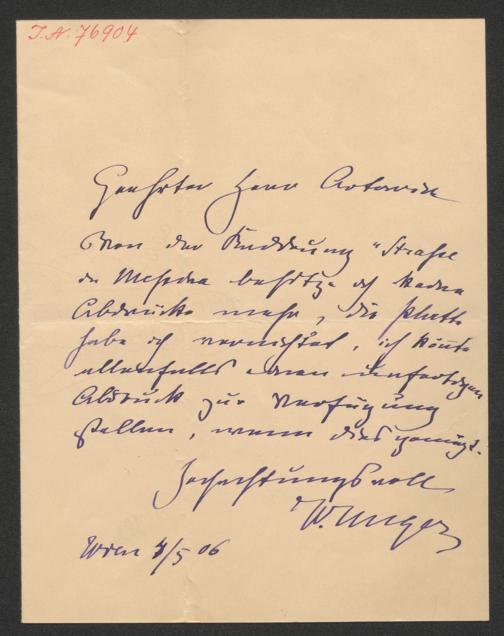 I.N. 76904
Geehrter Herr Artaria
Von der Radirung "Strasse
in besitze ich keine
Abdrücke mehr, die Platte
habe ich vernichtet, ich könnte
allenfalls einen unfertigen
Abdruck zur Verfügung
stellen, wenn dies genügt.
Hochachtungsvoll
W. Unger
Wien 7/5 06